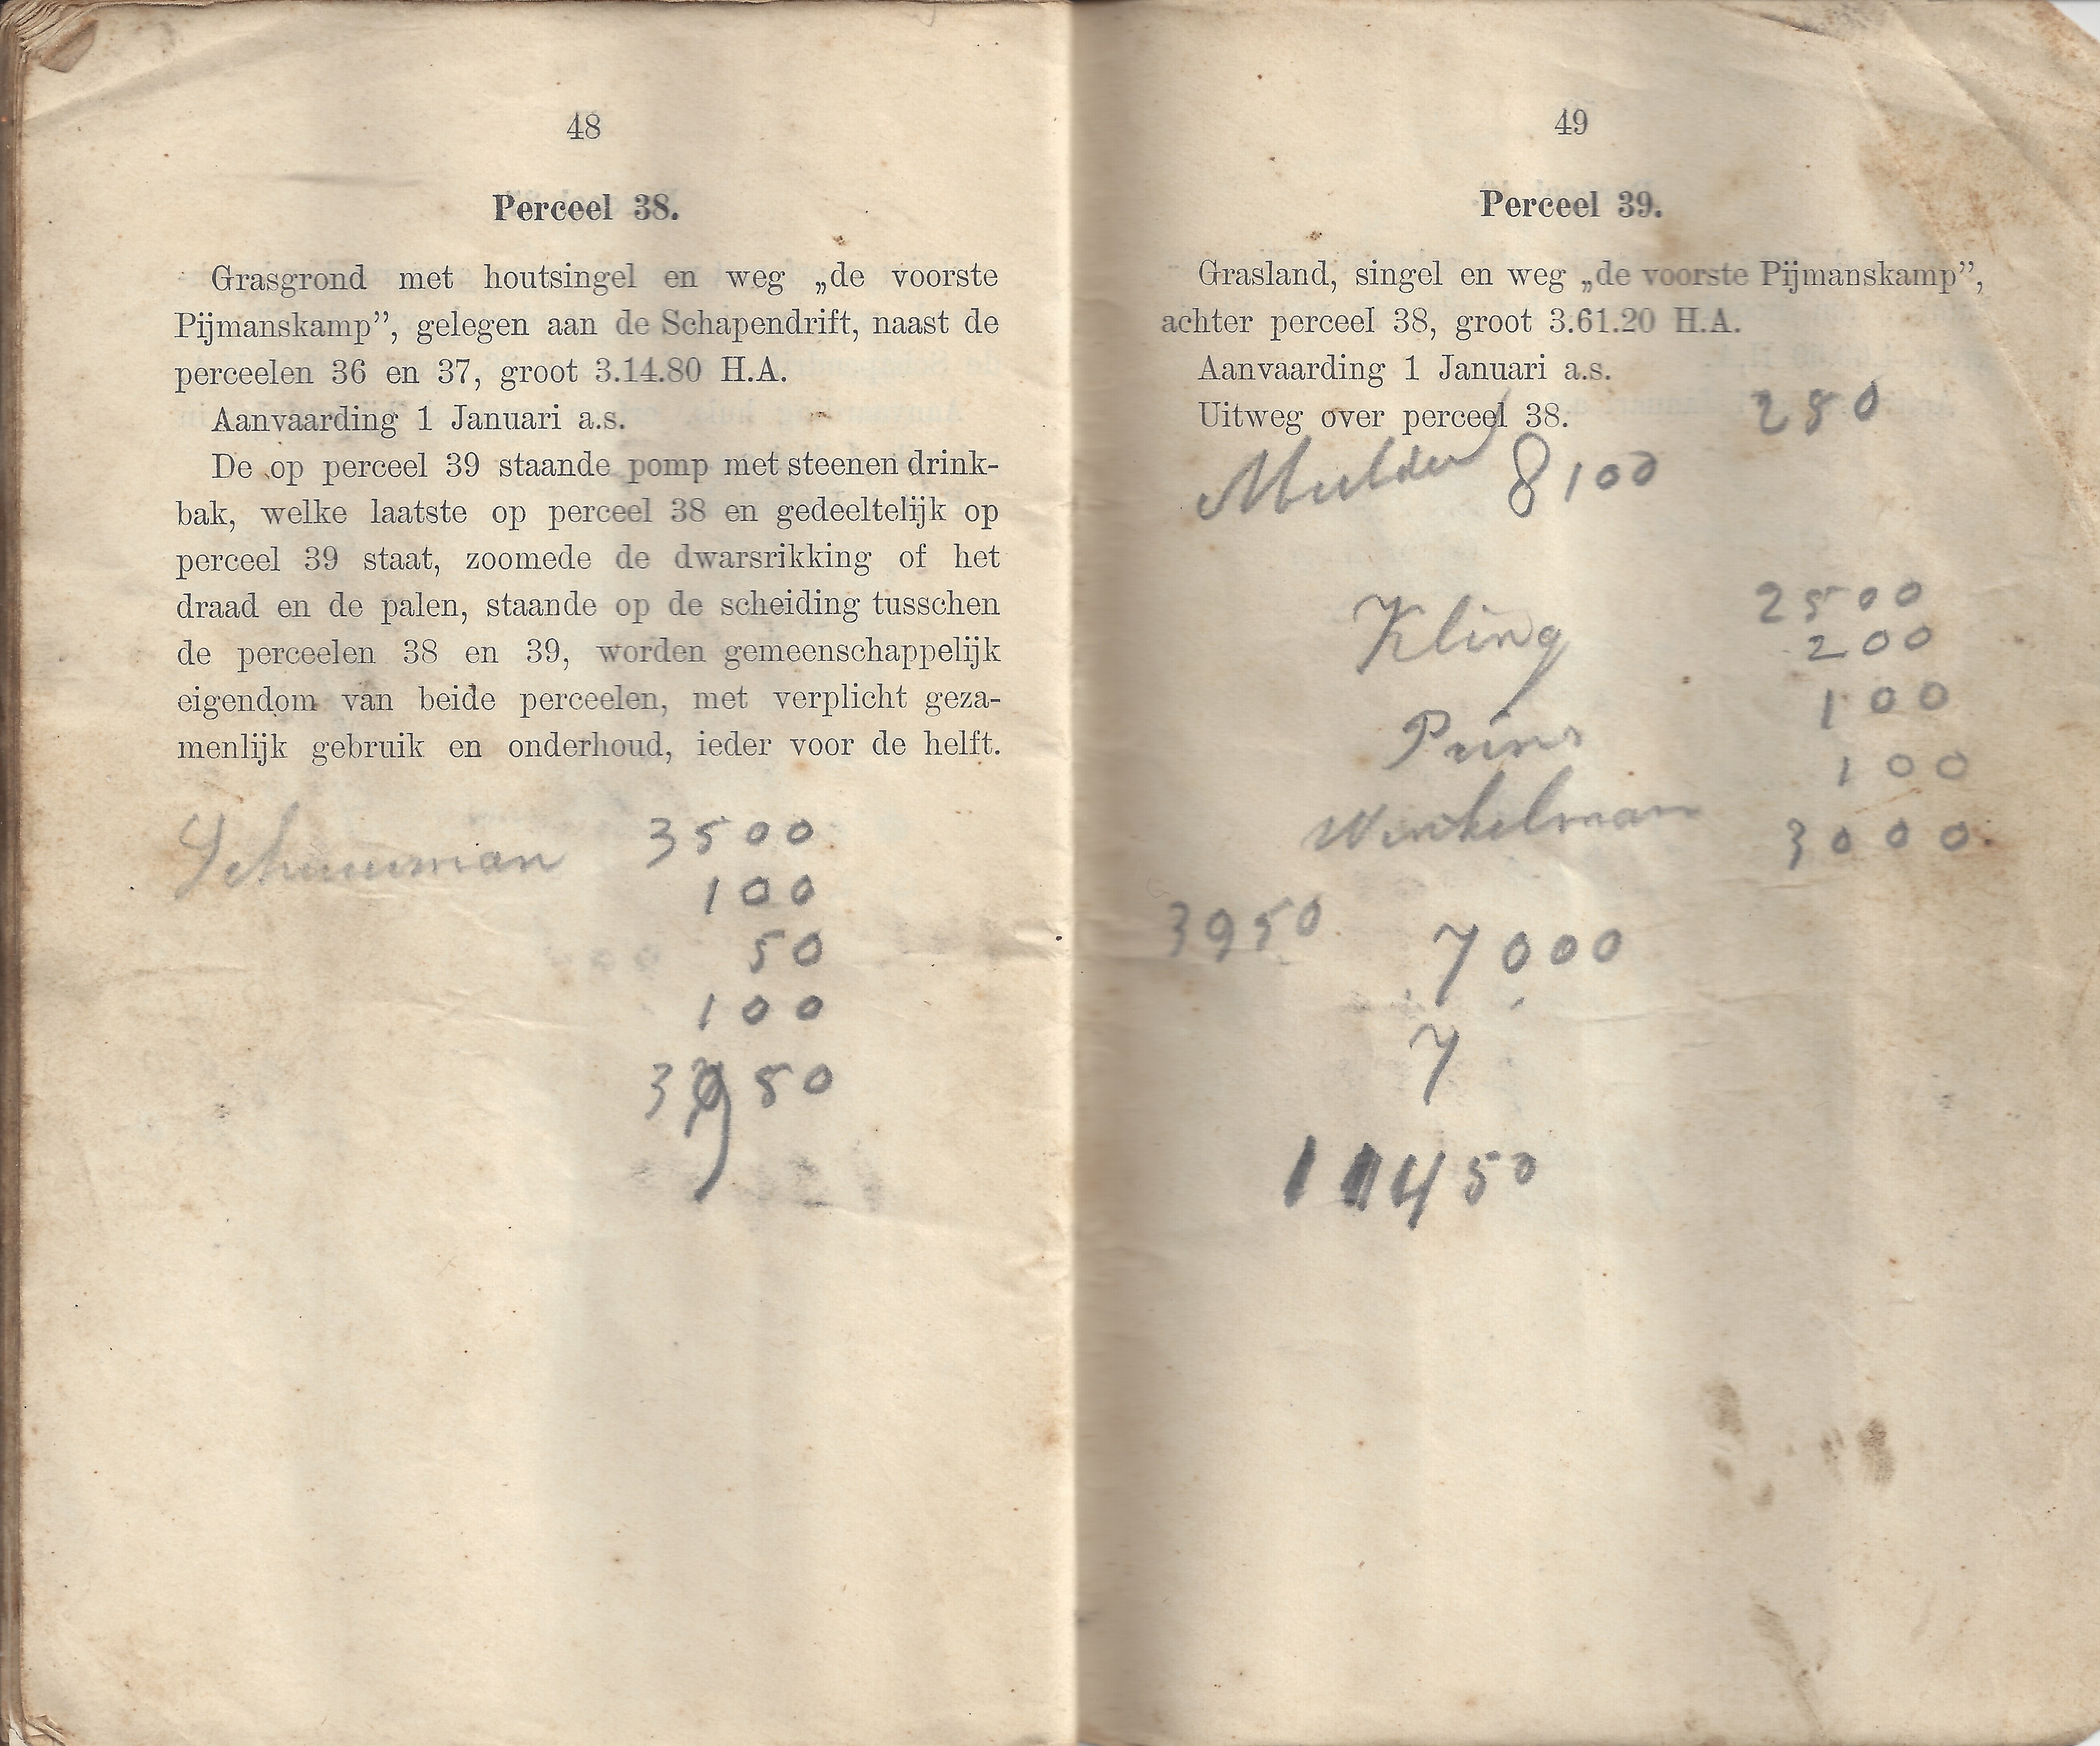 48
Perceel 38.
Grasgrond met houtsingel en weg „de voorste
Pijmanskamp”, gelegen aan de Schapendrift, naast de
perceelen 36 en 37, groot 3.14.80 H.A.
Aanvaarding 1 Januari a.s.
De op perceel 39 staande pomp met steenen drink-
bak, welke laatste op perceel 38 en gedeeltelijk op
perceel 39 staat, zoomede de dwarsrikking of het
draad en de palen, staande op de scheiding tusschen
de perceelen 38 en 39, worden gemeenschappelijk
eigendom van beide perceelen, met verplicht geza-
menlijk gebruik en onderhoud, ieder voor de helft.
Schuurman 3500
100
50
100
3950
49
Perceel 39.
Grasland, singel en weg „de voorste Pijmanskamp”,
achter perceel 38, groot 3.61.20 H.A.
Aanvaarding 1 Januari a.s.
Uitweg over perceel 38.
280
Mulder 8100
Kling 2500
200
100
Prins
100
Winkelman 3000
3950 7000
7
11450